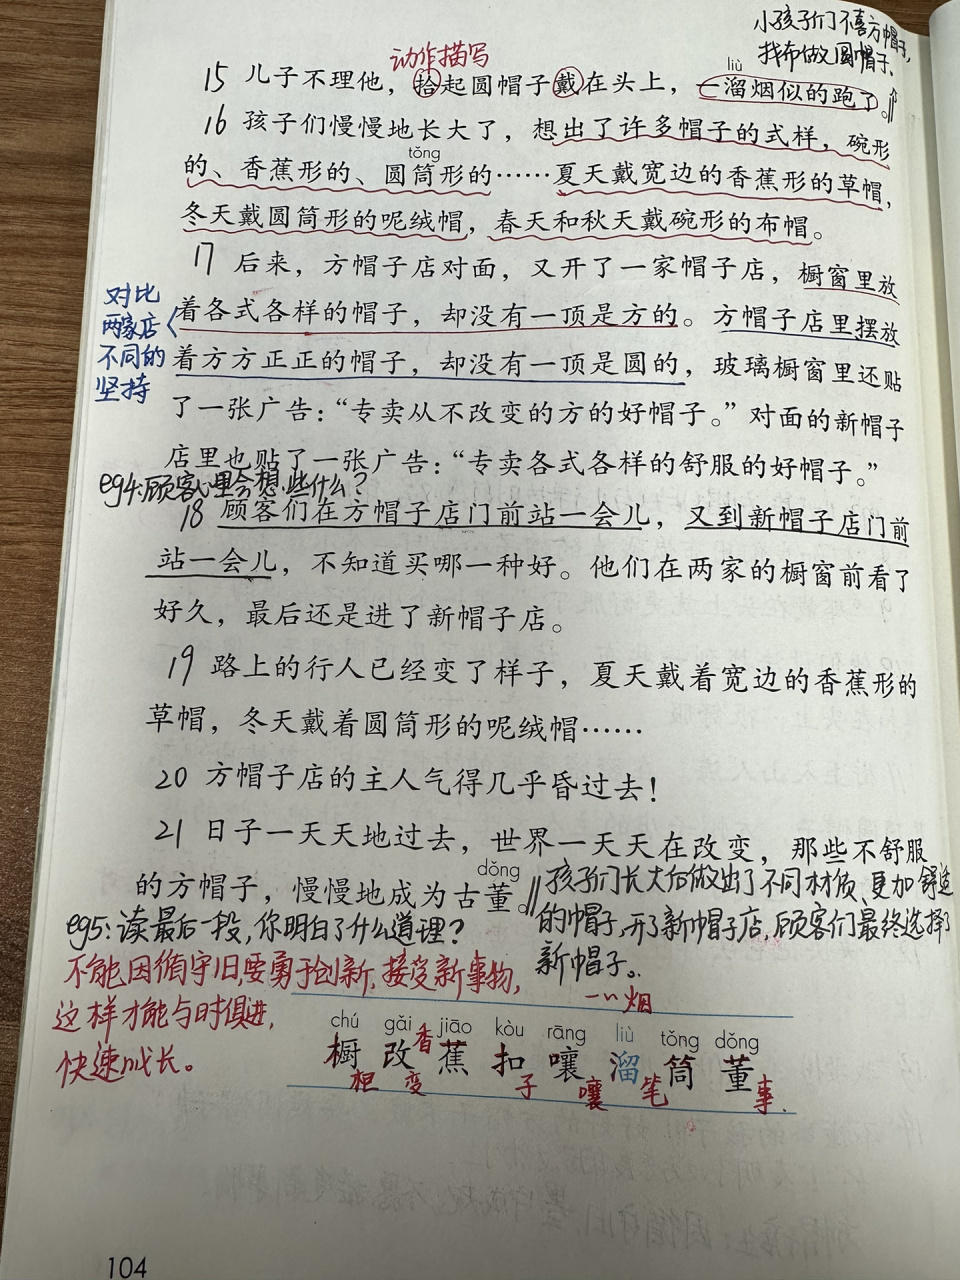 小孩子们不喜方帽子,
找布做圆帽子、
动作描写
liù
15 儿子不理他，拾起圆帽子戴在头上，一溜烟似的跑了。
16 孩子们慢慢地长大了，想出了许多帽子的式样，碗形
tǒng
的、香蕉形的、圆筒形的……夏天戴宽边的香蕉形的草帽，
冬天戴圆筒形的呢绒帽，春天和秋天戴碗形的布帽。
17 后来，方帽子店对面，又开了一家帽子店，橱窗里放
对比
两家店
不同的
坚持
着各式各样的帽子，却没有一顶是方的。方帽子店里摆放
着方方正正的帽子，却没有一顶是圆的，玻璃橱窗里还贴
了一张广告：“专卖从不改变的方的好帽子。”对面的新帽子
店里也贴了一张广告：“专卖各式各样的舒服的好帽子。”
eg4:顾客心里会想些什么?
18 顾客们在方帽子店门前站一会儿，又到新帽子店门前
站一会儿，不知道买哪一种好。他们在两家的橱窗前看了
好久，最后还是进了新帽子店。
19 路上的行人已经变了样子，夏天戴着宽边的香蕉形的
草帽，冬天戴着圆筒形的呢绒帽……
20 方帽子店的主人气得几乎昏过去！
21 日子一天天地过去，世界一天天在改变，那些不舒服
dǒng
的方帽子，慢慢地成为古董。
孩子们长大后做出了不同材质、更加舒适
的帽子,开了新帽子店,顾客们最终选择了
新帽子。
eg5:读最后一段,你明白了什么道理?
不能因循守旧,要勇于创新,接受新事物,
这样才能与时俱进,
快速成长。
一~烟
chú gǎi jiāo kòu rāng liù tǒng dǒng
橱 改 香蕉 扣 嚷 溜 筒 董
柜 变 子 嚷 笔 事
104